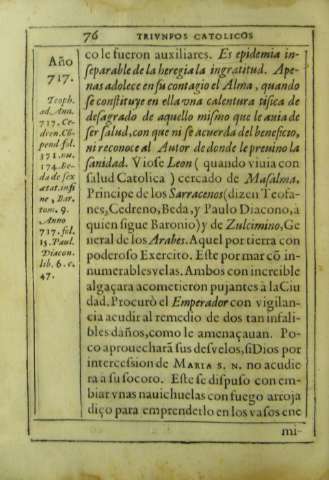 76 TRIVNFOS CATOLICOS
Año
717.
Teoph.
ad. Ann.
717. Ce-
dren. Cõ-
pend. fol.
371. nu.
174. Be-
da de sex
ætat. in fi-
ne, Bar,
tom. 9.
Anno
717. fol.
15. Paul.
Diacon.
lib. 6. c.
47.
co le fueron auxiliares. Es epidemia in-
separable de la heregia la ingratitud. Ape-
nas adolece en su contagio el Alma, quando
se constituye en ella vna calentura tisica de
desagrado de aquello mismo que le auia de
ser salud, con que ni se acuerda del beneficio,
ni reconoce al Autor de donde le preuino la
sanidad. Viose Leon (quando viuia con
salud Catolica) cercado de Masalma,
Principe de los Sarracenos (dizen Teofa-
nes, Cedreno, Beda, y Paulo Diacono, à
quien sigue Baronio) y de Zulcimino, Ge
neral de los Arabes. Aquel por tierra con
poderoso Exercito. Este por mar cõ in-
numerables velas. Ambos con increible
algaçara acometieron pujantes à la Ciu
dad. Procurò el Emperador con vigilan-
cia acudir al remedio de dos tan infali-
bles daños, como le amenaçauan. Po-
co aprouecharã sus desvelos, si Dios por
intercession de MARIA S. N. no acudie
ra a su socoro. Este se dispuso con em-
biar vnas nauichuelas con fuego arroja
diço para emprenderlo en los vasos ene
mi-